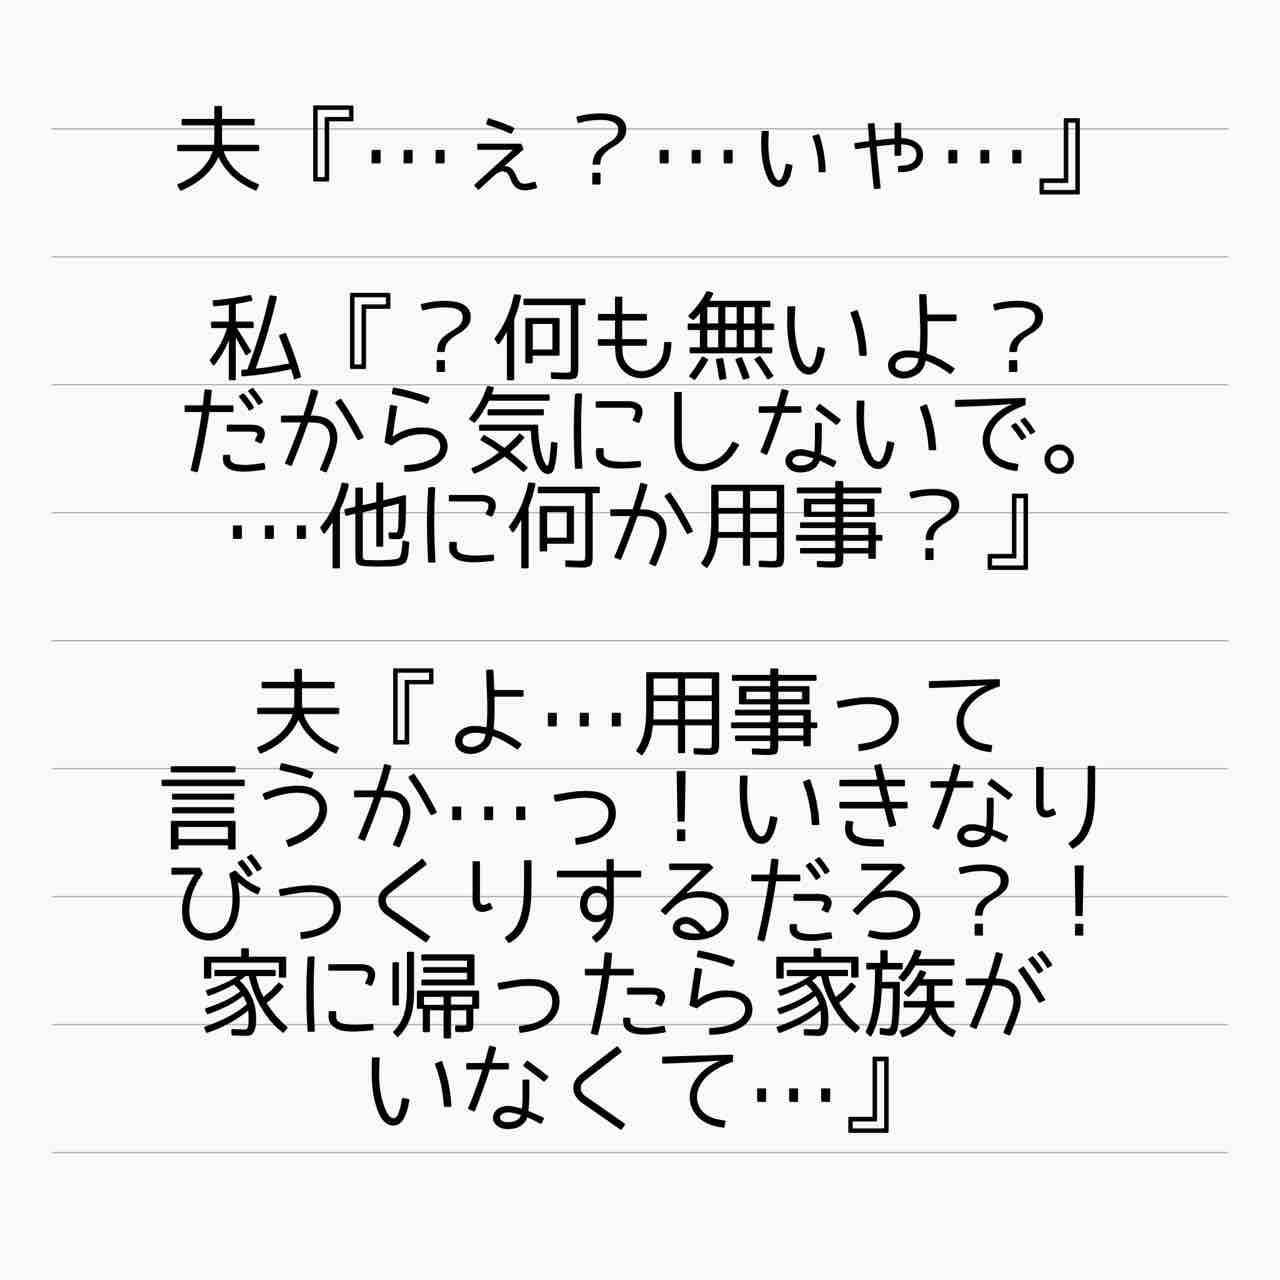 夫『…ぇ？…ぃゃ…』
私『？何も無いよ？
だから気にしないで。
…他に何か用事？』
夫『よ…用事って
言うか…っ！いきなり
びっくりするだろ？！
家に帰ったら家族が
いなくて…』